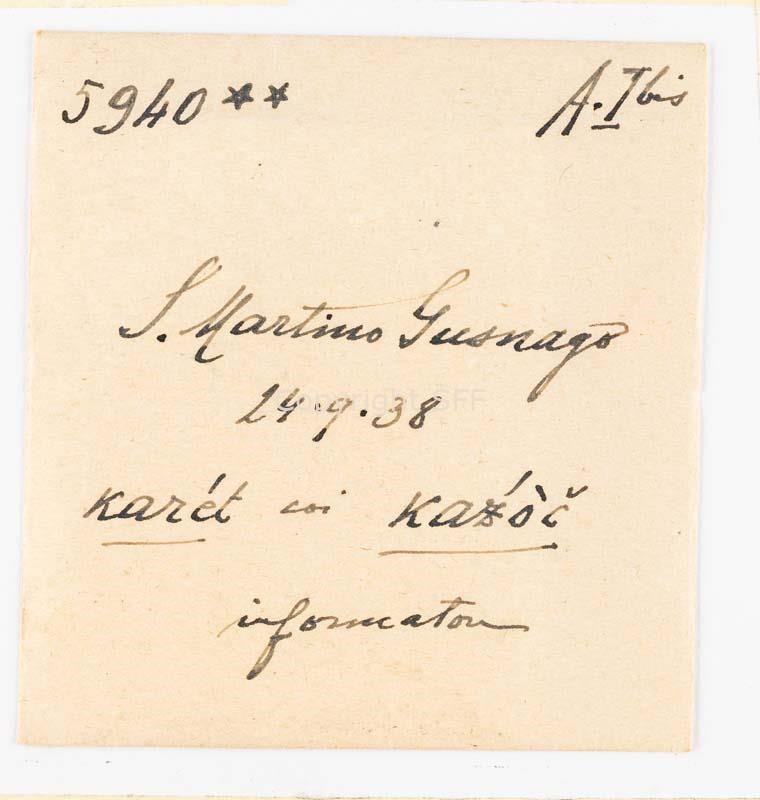 5940**
A. I bis
S. Martino Gusnago
24.9.38
karét coi kaźòč
informatore
Copyright SFF